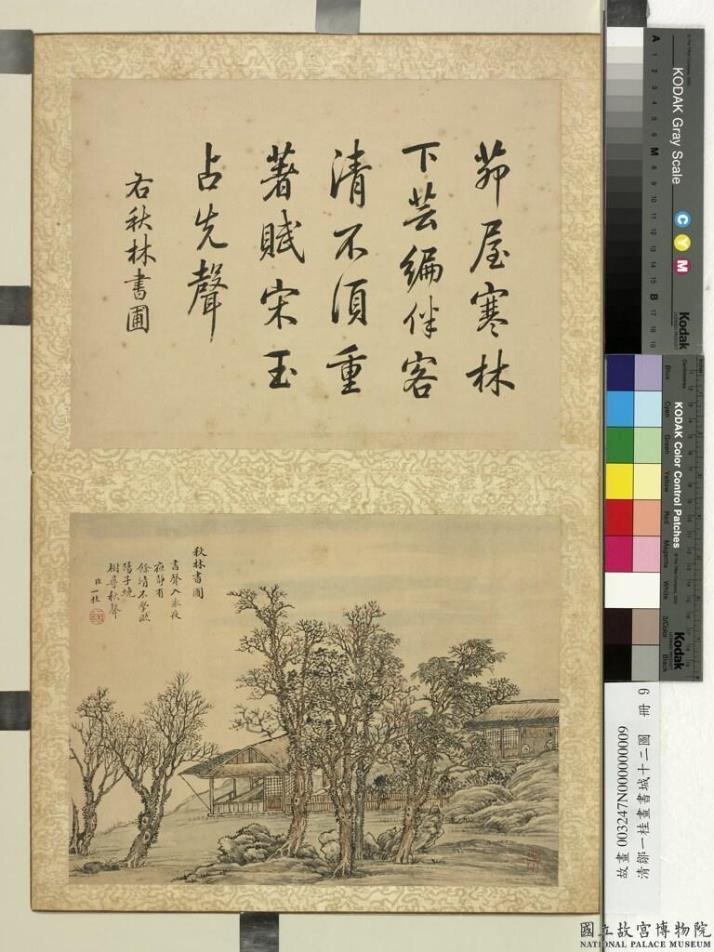 茆屋寒林
下芸編伴客
清不須重
著賦宋玉
占先聲
右秋林書圃
秋林書圃
書聲入永夜
夜靜有
餘清不學歐
陽子繞
樹尋秋聲
臣一桂
KODAK Gray Scale
C Y M
Kodak
A 1 2 3 4 5 6 M 8 9 10 11 12 13 14 15 B 17 18 19
KODAK Color Control Patches
Blue Cyan Green Yellow Red Magenta White 3/Color Black
Kodak
故畫003247N000000009
清鄒一桂畫書城十二圖 冊 9
國立故宮博物院
NATIONAL PALACE MUSEUM